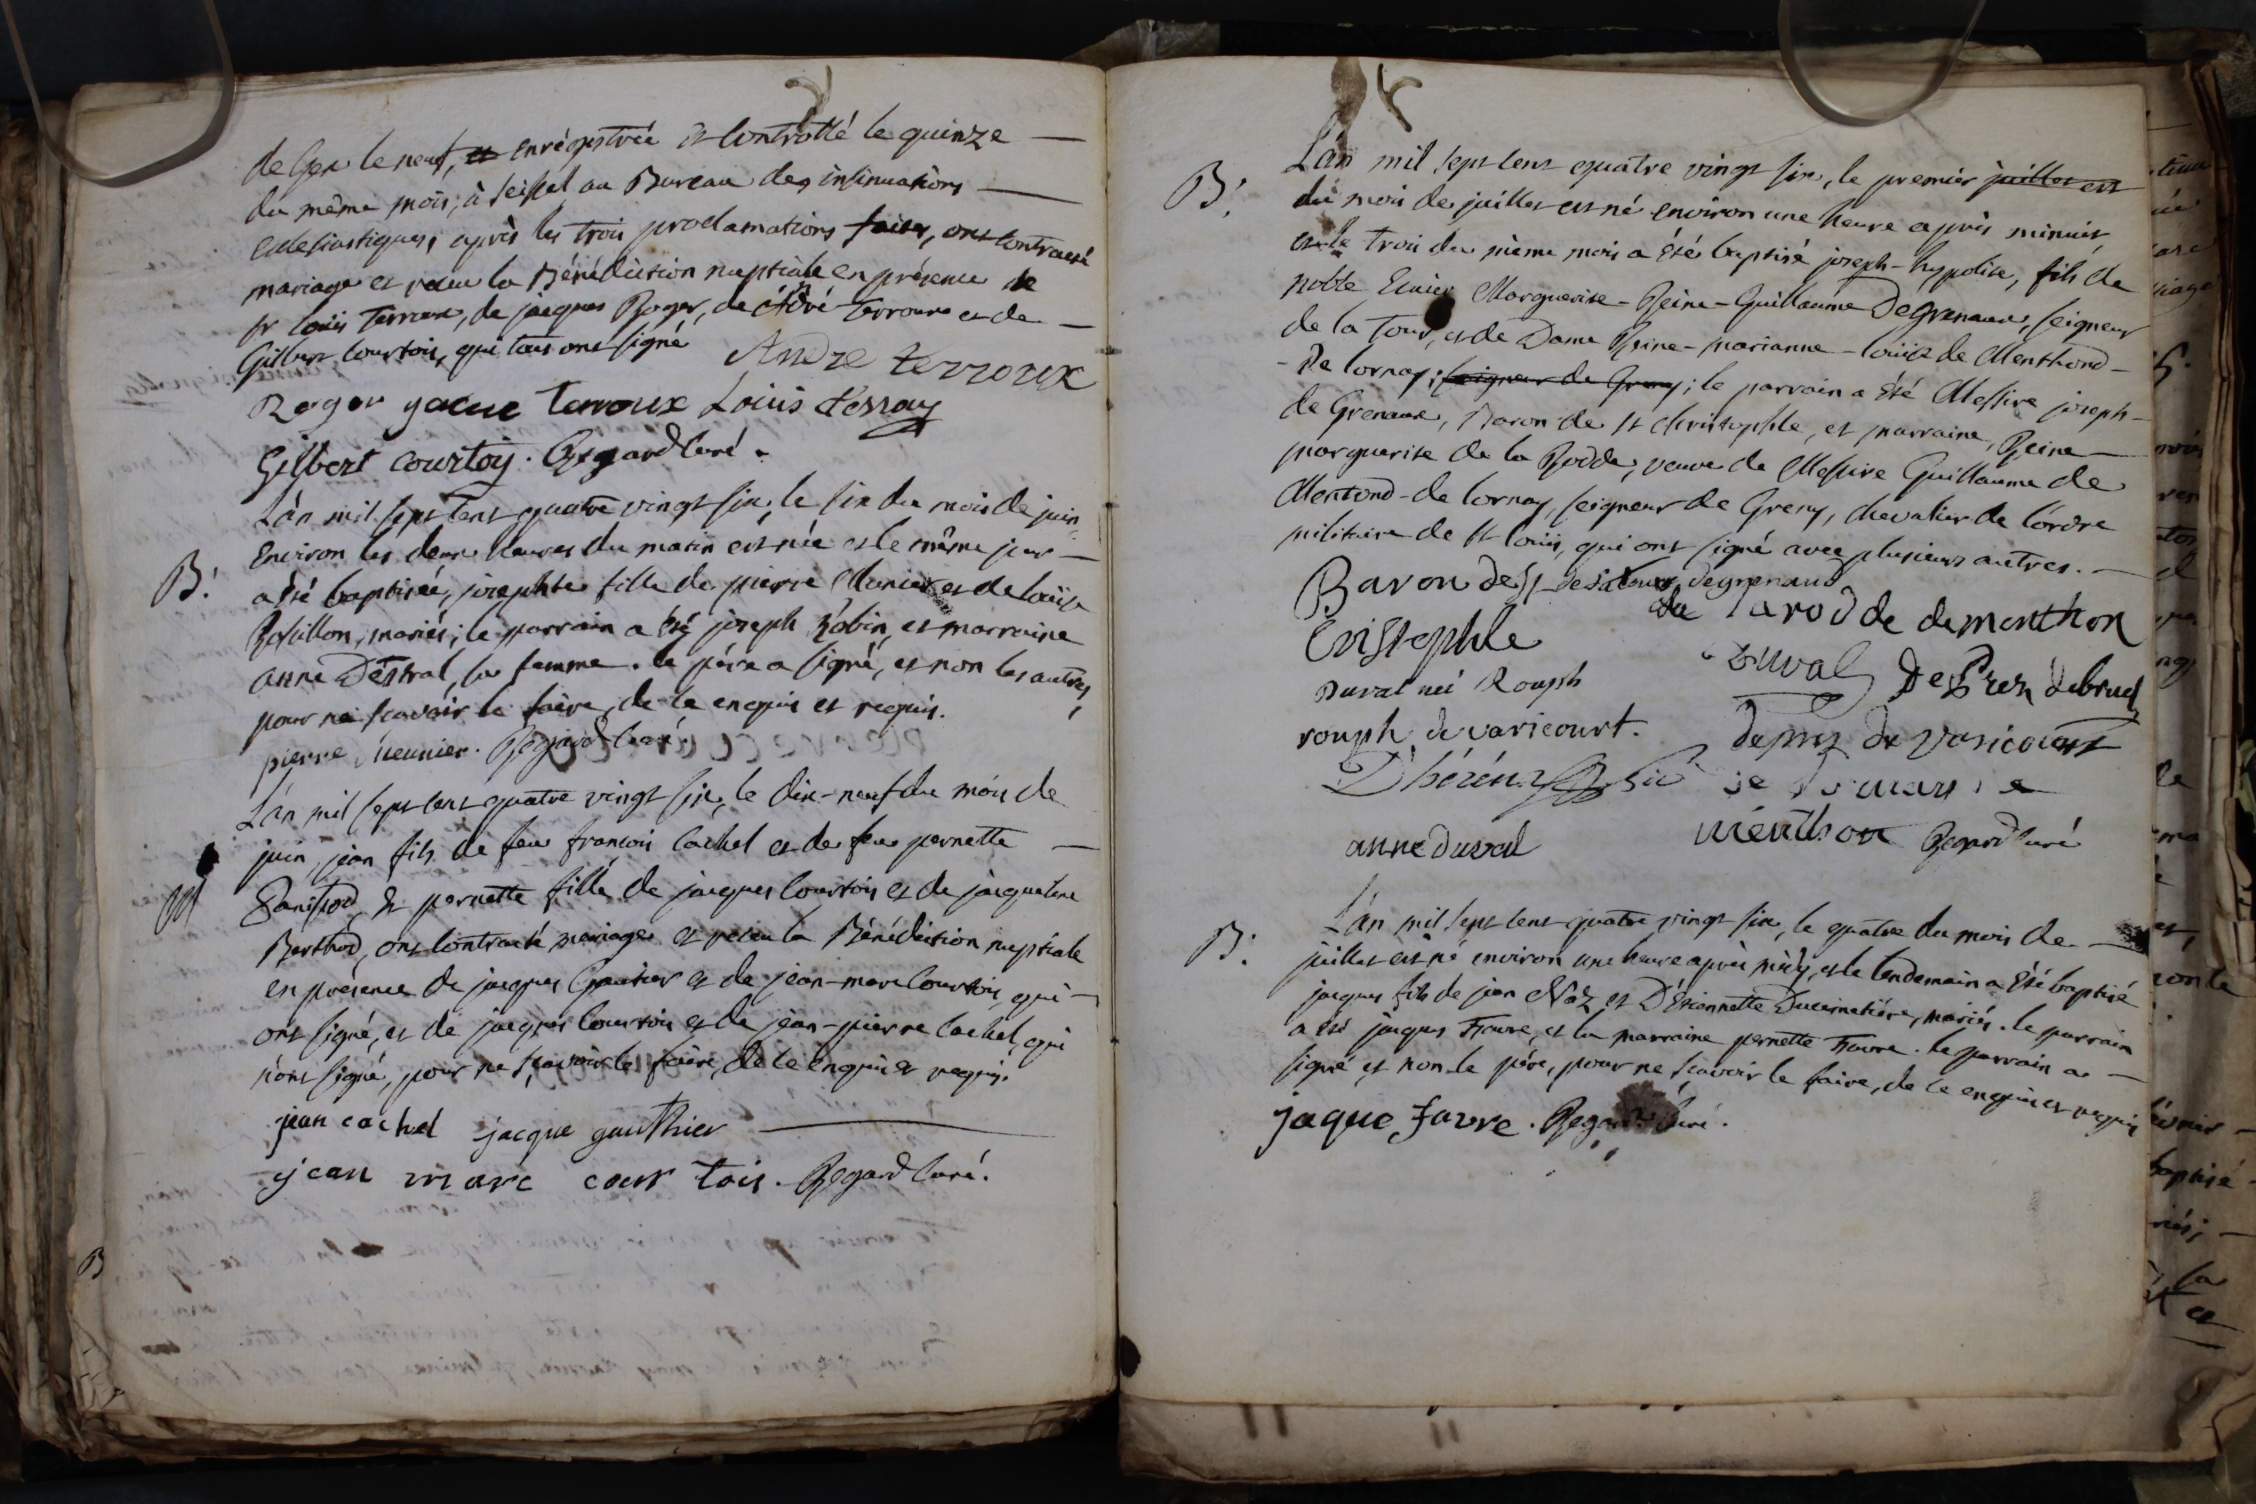 de Gex le neuf, et enrégistrée et Controllé le quinze
du même mois, à Seissel au Bureau des insinuations
ecclesiastiques, après les trois proclamations faites, ont contracté
mariage et reçeu la Bénédiction nuptiale en présence de
sr loüis Terroux, de jacques Roger, de André terroux et de
Gilbert Courtois, qui tous ont signé
André terroux
Roger jacque terroux Loüis
Gilbert Courtoy. Regard Curé.
L'an mil sept cent quatre vingt six, le six du mois de juin
B.
Environ les deux heures du matin est née et le même jour
a été baptisée, josephte fille de pierre Munier et de loüise
Rossillon, mariés; le parrain a été joseph Robin, et marraine
anne Déstral, sa femme. le père a signé, et non les autres,
pour ne sçavoir le faire, de ce enquis et requis.
pierre meunier. Regard Curé
L'an mil sept cent quatre vingt six, le dix-neuf du mois de
juin, jean fils de feu francois Cachet et de feue pernette
M
et pernette fille de jacques Courtois et de jacqueline
Berthod, ont Contracté mariage et reçeu la Bénédiction nuptiale
en présence de jacques Gautier et de jean-marc Courtois, qui
ont signé, et de jacques Courtois et de jean-pierre Cachet, qui
n'ont signé, pour ne sçavoir le faire, de ce enquis et requis.
jean cachet jacque gauthier
jean marc cour tois. Regard Curé.
B
L'an mil sept cent quatre vingt six, le premier juillet est
B.
du mois de juillet est né environ une heure après minuit,
et le trois du même mois a été baptisé joseph-hypolite, fils de
noble Ecuier Marguerite-Reine-Guillaume De Grenaud, seigneur
de la Tour, et de Dame Reine-marianne-loüise de Menthond-
De Lornay; seigneur de Greny; le parrain a été Messire joseph-
de Grenaud, Baron de St christophle, et marraine, Reine
marguerite de la Rodde, veuve de Messire Guillaume de
Mentond-de Lornay, seigneur de Greny, chevalier de l'ordre
militaire de St loüis, qui ont signé avec plusieurs autres.
Baron de St de la tour degrenaud
Cristophle de la rodde de menthon
Duval De Prez debrud
Duval née Rouph
rouph de varicourt. deprez de varicourt
anne duval menthon Regard Curé
L'an mil sept cent quatre vingt six, le quatre du mois de
B.
juillet est né environ une heure après midy, et le lendemain a été baptisé
jacques fils de jean Naz et D'Etiennette Ducimetière, mariés. le parrain
a été jacques Favre, et la marraine pernette Favre. le parrain a
signé et non le père, pour ne sçavoir le faire, de ce enquis et requis
jaque favre. Regard Curé.